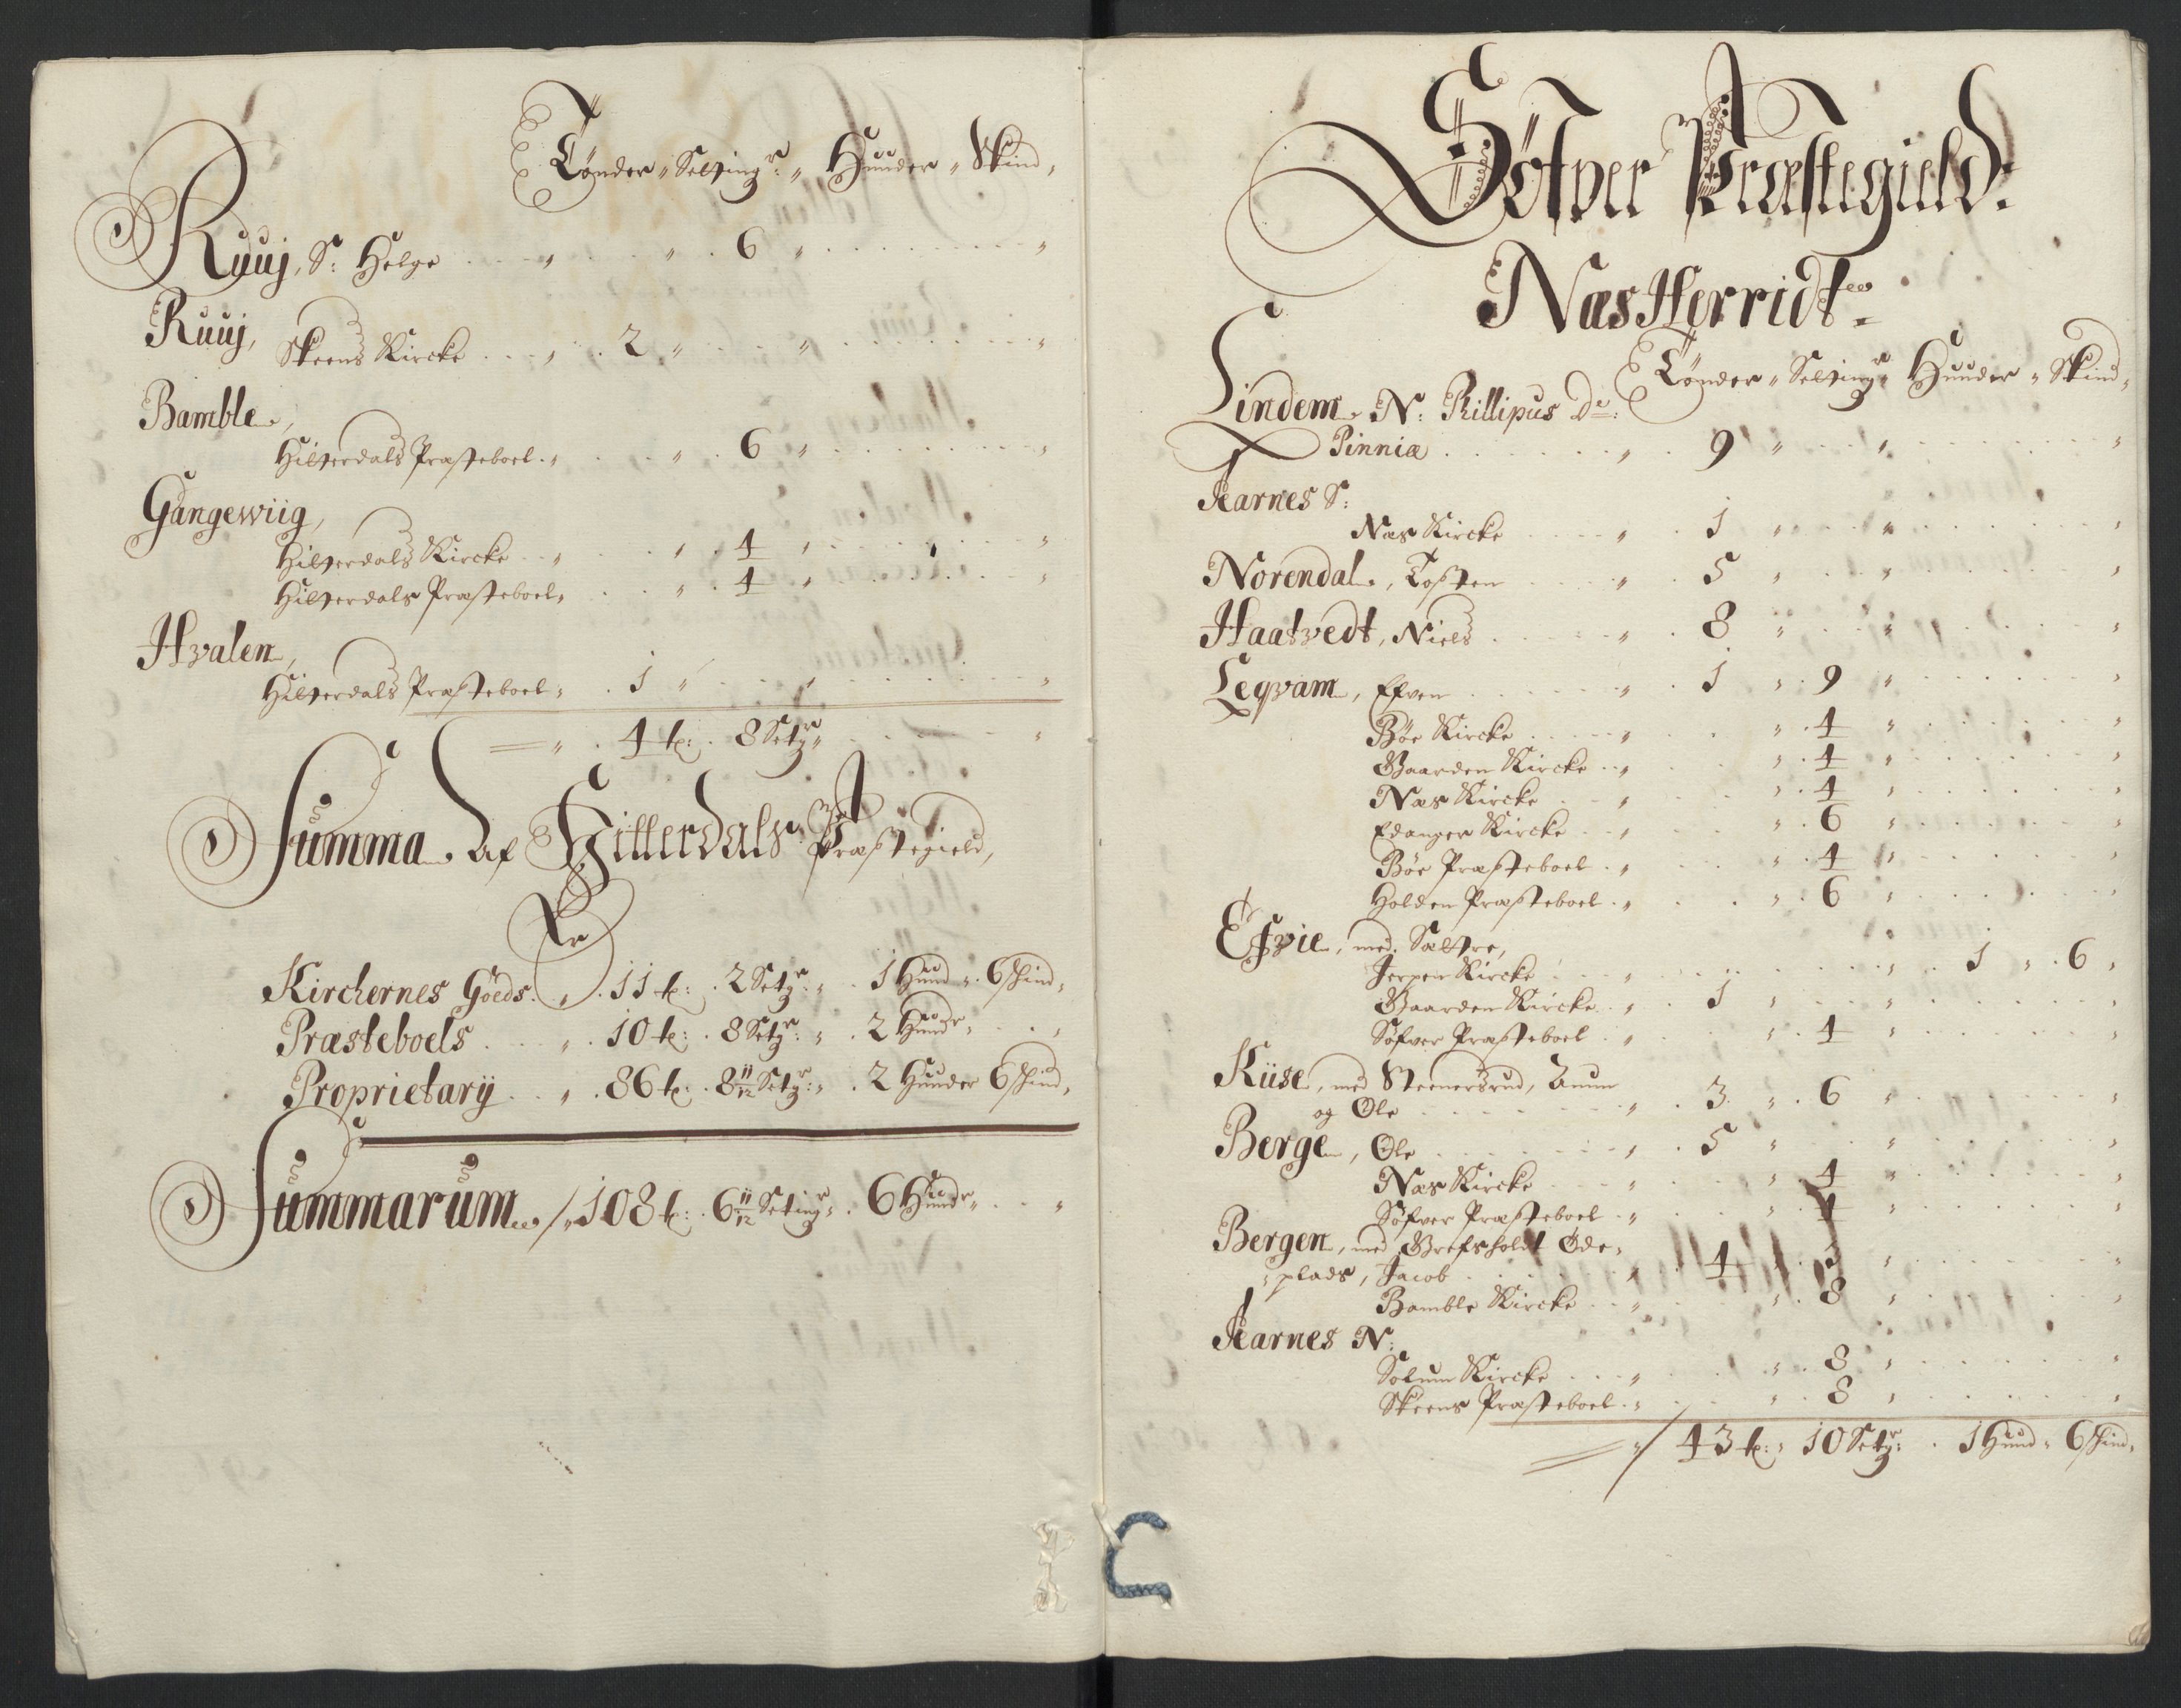 Tønder " Setting^r: " Huuder " Skind,
Ruuj, S: Helge . . . " . . " . 6 " . . . "
Ruuj,
Skeens Kircke . . . " . 2 " . . " . . . "
Bamble,
Hitterdals Præsteboel . " . . " . 6 " . . . "
Gangewiig,
Hitterdals Kircke . . " . . " . 4 " . . . "
Hitterdals Præsteboel " . . " . 4 " . . . "
Hvalen,
Hitterdals Præsteboel " . 1 " . . " . . . "
" . 4 t: . 8 Setg^r " . . . "
Summa Af Hitterdals Præstegield,
Er
Kirchernes Goeds . " . 11 t: . 2 Setg^r: " . 1 Huud " . 6 skind,
Præsteboels . . " . 10 t: . 8 Setg^r: " . 2 Huud^r " . . "
Proprietarij . . " . 86 t: . 8 11/12 Setg^r: " . 2 Huuder 6 skind,
Summarum / " 108 t: . 6 11/12 Seting^r " . 6 Huud^r " . . "
Söfver Præstegield:
Næs Herridt
Tønder " Setting^r " Huuder " Skind,
Lindem N: Phillipus D^e:
Pinniæ . . . " . 9 " . . " . . . "
Aarnes S:
Næs Kircke . . . " . 1 " . . " . . . "
Norendal, Tosten . . . " . 5 " . . " . . . "
Haatvedt, Niels . . . " . 8 " . . " . . . "
Leqvam, Efven . . . " . 1 " . 9 " . . . "
Bøe Kircke . . . " . . " . 4 " . . . "
Gaarden Kircke . . " . . " . 4 " . . . "
Næs Kircke . . " . . " . 4 " . . . "
Edanger Kircke . . " . . " . 6 " . . . "
Bøe Præsteboel . " . . " . 4 " . . . "
Holden Præsteboel . " . . " . 6 " . . . "
Efvie, med Sættre,
Jerpen Kircke . . " . . . " . 1 " . 6 "
Gaarden Kircke . " . 1 " . . " . . . "
Søfver Præsteboel . " . . " . 4 " . . . "
Kiise, med Steenersrud, Anun
og Ole . . . " . 3 " . 6 " . . . "
Berge, Ole . . . " . 5 " . . " . . . "
Næs Kircke . . " . . " . 4 " . . . "
Søfver Præsteboel . " . . " . 4 " . . . "
Bergen, med Grefsholdt Øde,
plads, Jacob . . . " . 4 " . 3 " . . . "
Bamble Kircke . . " . . " . 8 " . . . "
Aarnes N:
Solum Kircke . . . " . . " . 8 " . . . "
Skeens Præsteboel . " . . " . 8 " . . . "
" / 43 t: " 10 Setg^r: . 1 Huud " 6 skind,